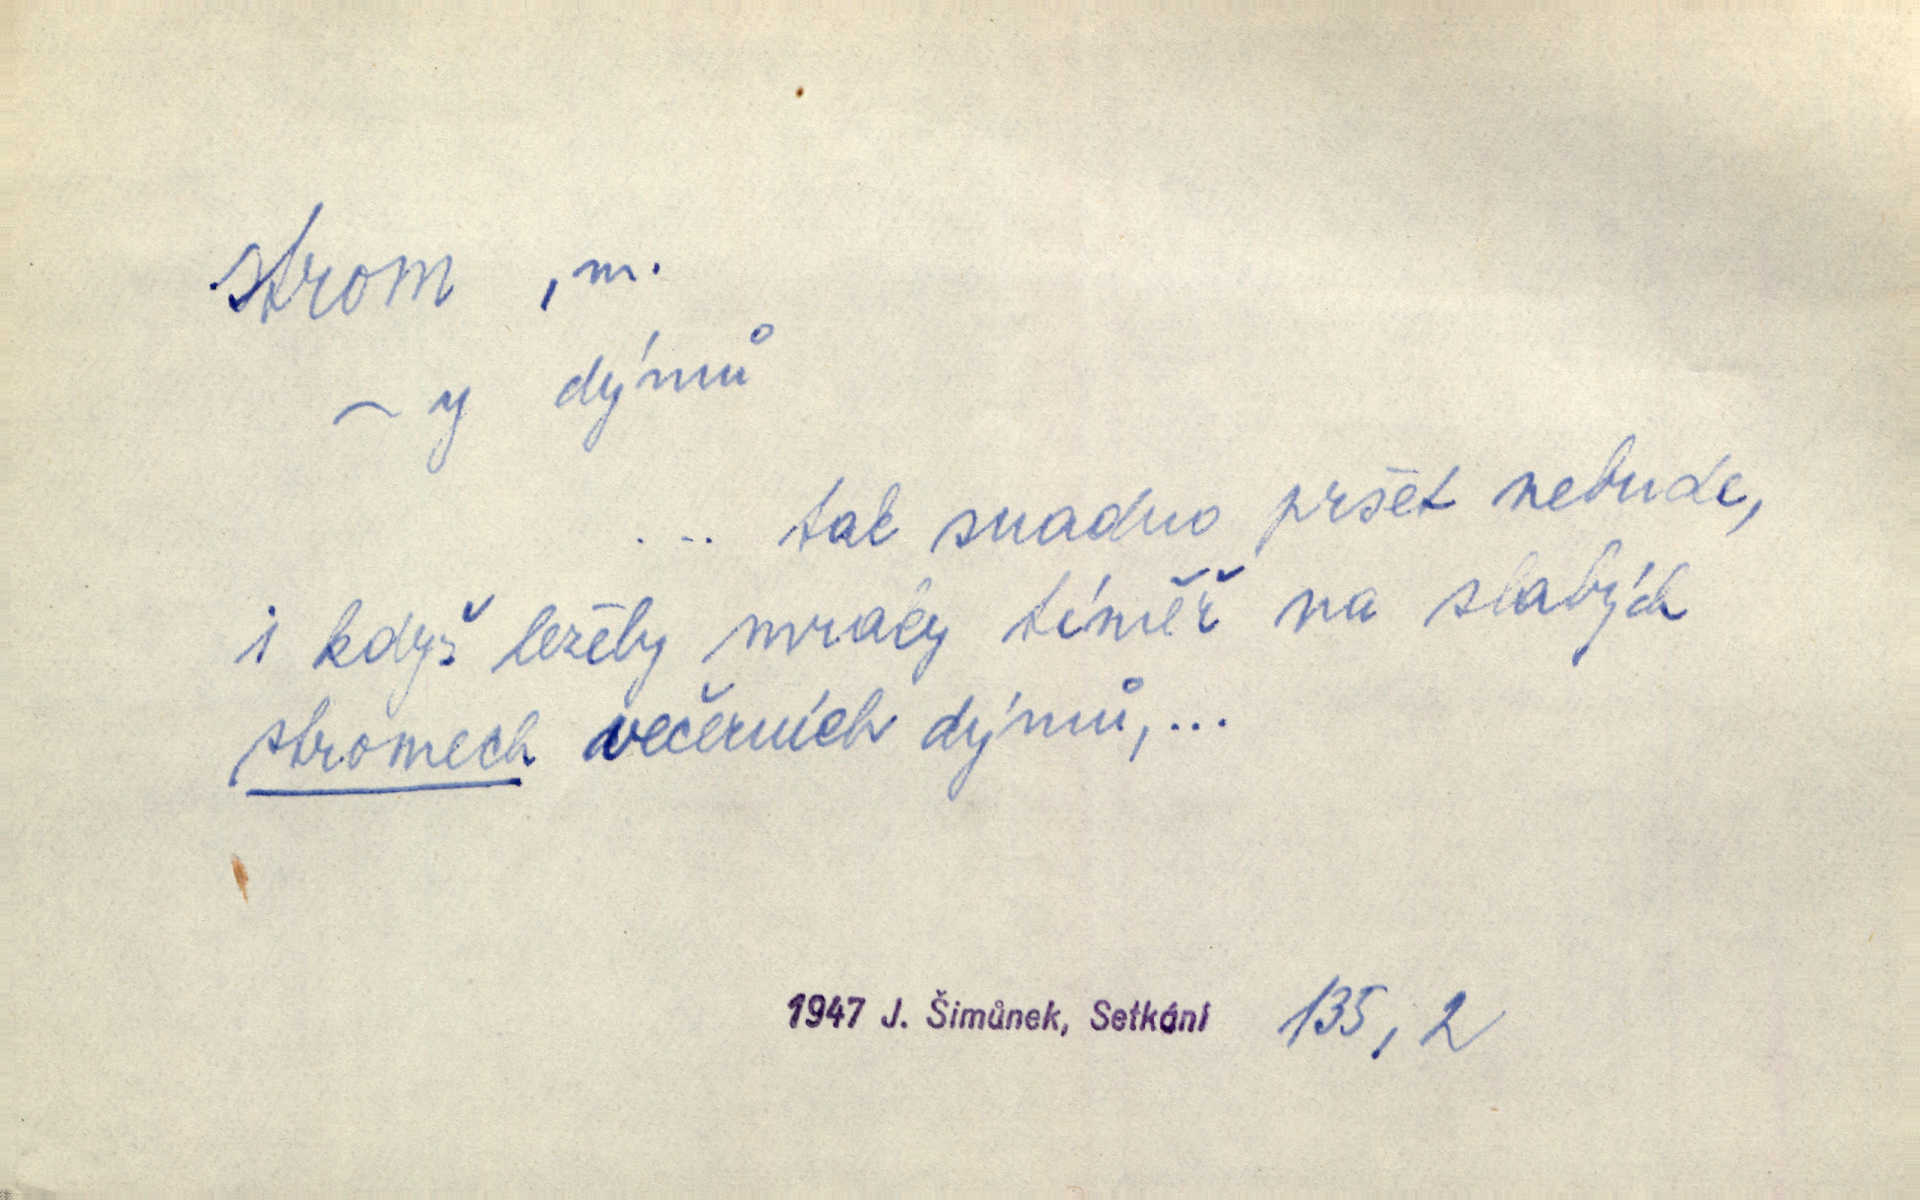 strom , m.
~ y dýmů
... tak snadno pršet nebude,
i když ležely mraky téměř na slabých
stromech večerních dýmů,...
1947 J. Šimůnek, Setkání 135, 2